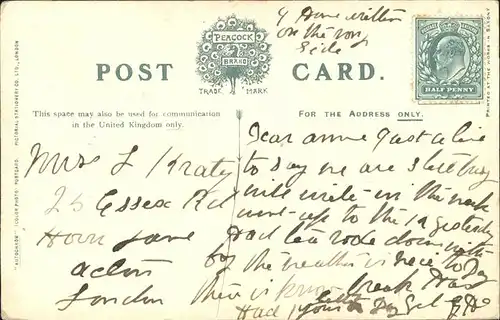 I Have written
on the rong
Side
PEACOCK
BRAND
TRADE MARK
POST CARD.
HALF PENNY
This space may also be used for communication
in the United Kingdom only.
FOR THE ADDRESS ONLY.
"AUTOCHROM" (COLOR PHOTO) POSTCARD. PICTORIAL STATIONERY CO. LTD., LONDON
PRINTED AT THE WORKS IN SAXONY
Miss L
25 Essex Rd
Horn Lane
Acton
London
Dear Annie Just a line
to say we are still busy
will write in the week
up to the yesterday
had tea rode down with
the weather is nice to Day
their is
Had your letter to Day